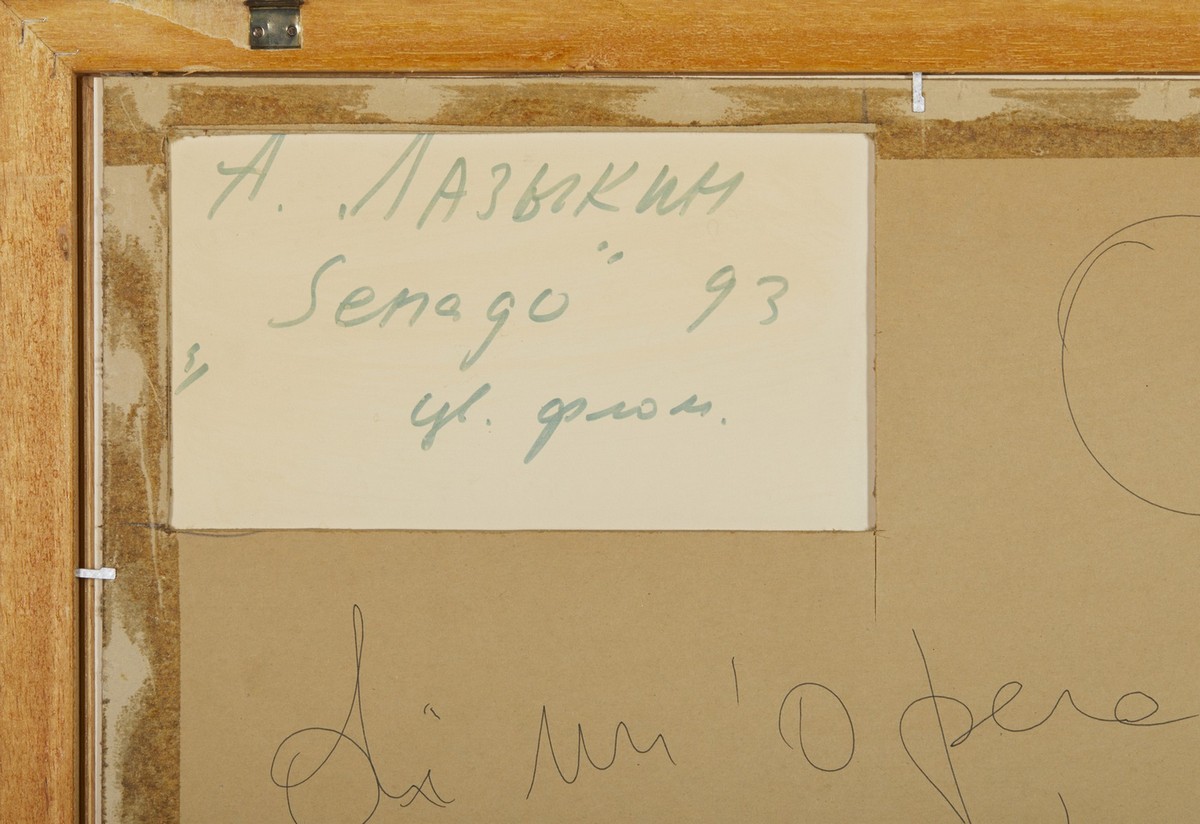 А. ЛАЗЫКИН
„Senago" 93
цв. флом.
di un'Opera